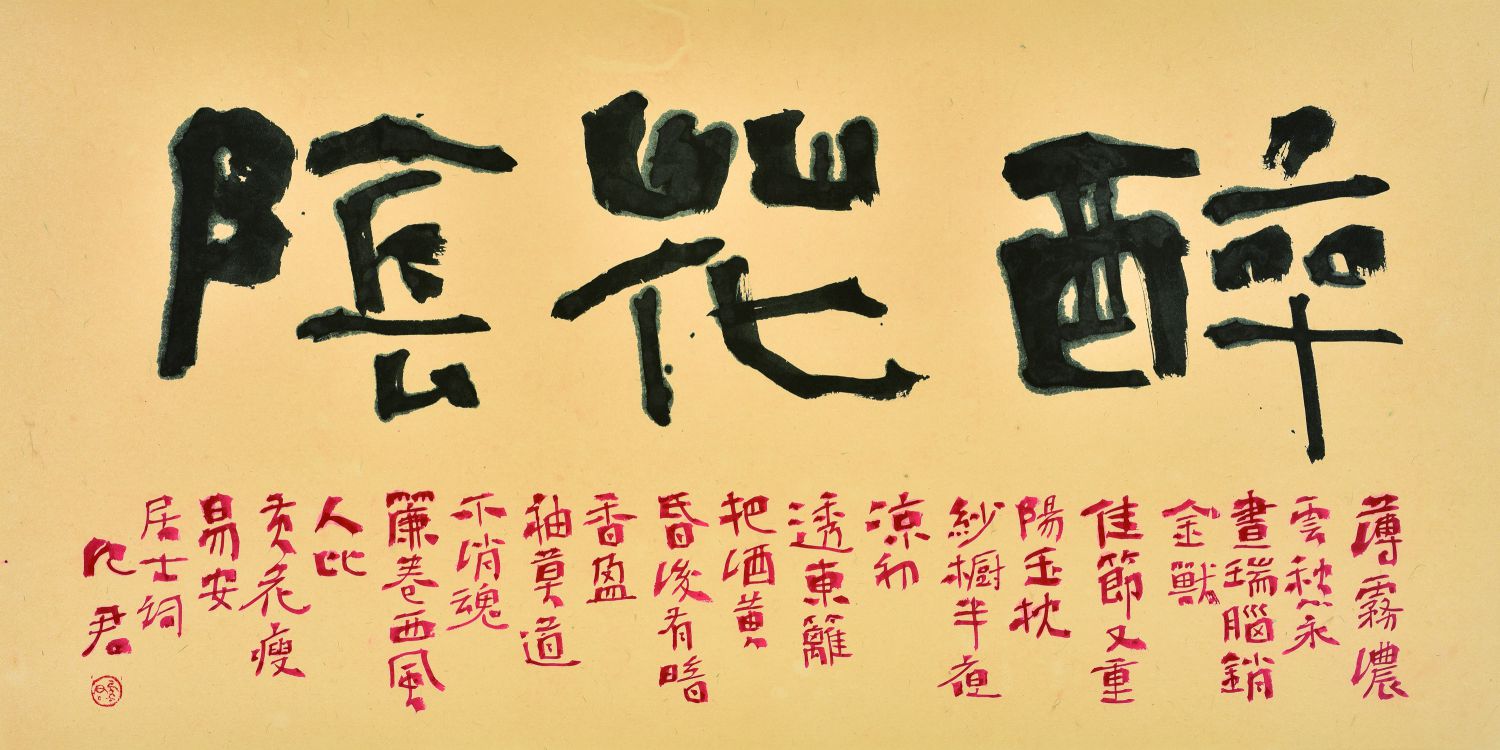 醉花陰
薄霧濃
雲愁永
晝瑞腦銷
金獸
佳節又重
陽玉枕
紗橱半夜
涼初
透東籬
把酒黃
昏後有暗
香盈
袖莫道
不消魂
簾卷西風
人比
黃花瘦
易安
居士詞
君